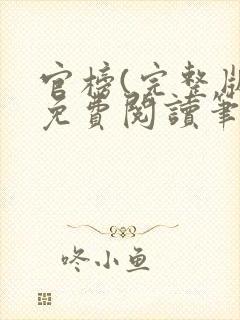 官榜(完整版
免費閱讀筆
咚小鱼